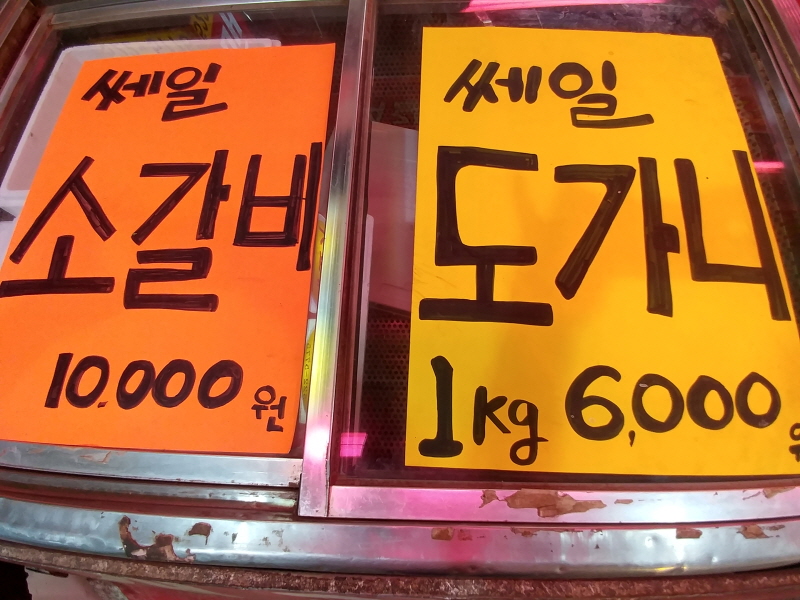 쎄일
소갈비
10.000원
쎄일
도가니
1kg 6,000